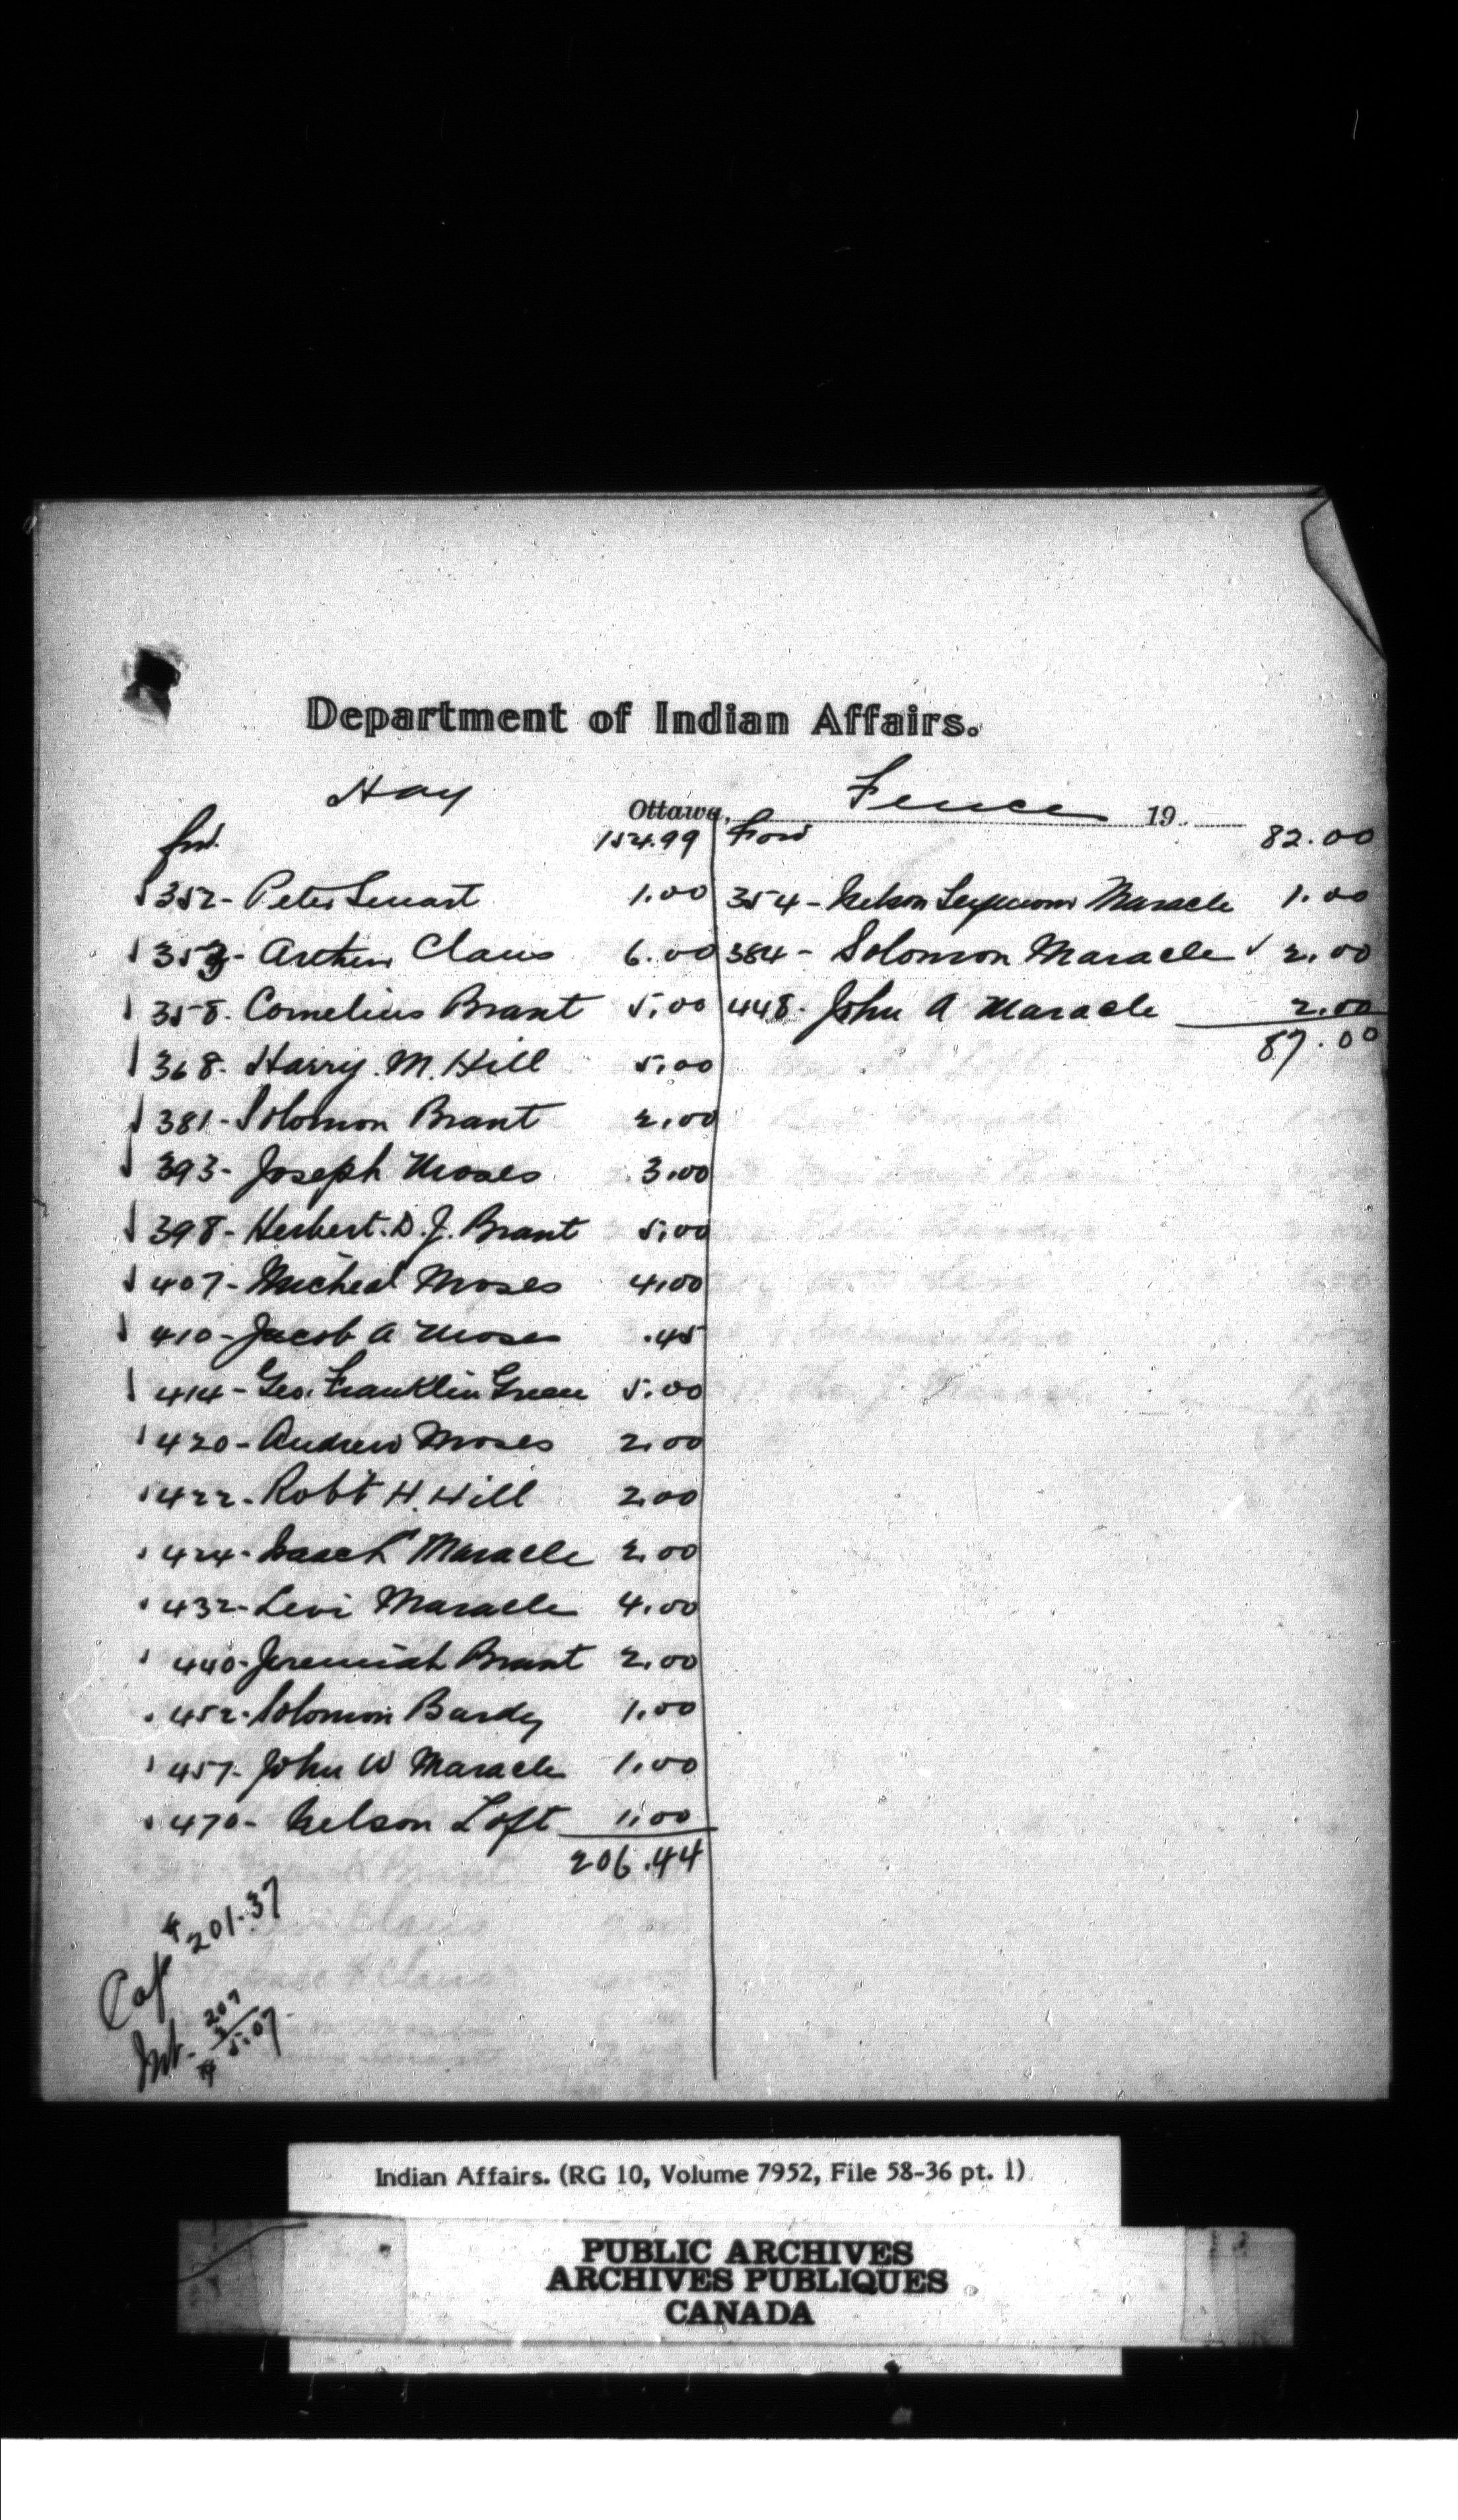 Department of Indian Affairs.
Hay
Ottawa, Fence 19
Ford. 154.99
352- Peter Smart 1.00
353- Arthur Claus 6.00
358- Cornelius Brant 5.00
368- Harry. M. Hill 5.00
381- Solomon Brant 2.00
393- Joseph Moses 3.00
398- Herbert. D. J. Brant 5.00
407- Micheal Moses 4.00
410- Jacob A Moses .45
414- Geo. Franklin Green 5.00
420- Andrew Moses 2.00
422- Robt H. Hill 2.00
424- Isaac Maracle 2.00
432- Levi Maracle 4.00
440- Jeremiah Brant 2.00
452- Solomon Bardy 1.00
457- John W Maracle 1.00
470- Nelson Loft 1.00
206.44
Ford 82.00
354- Nelson Seymour Maracle 1.00
384- Solomon Maracle √ 2.00
448- John A Maracle 2.00
87.00
Cap $201.37
Int. 207
3
$5.07
Indian Affairs. (RG 10, Volume 7952, File 58-36 pt. 1)
PUBLIC ARCHIVES
ARCHIVES PUBLIQUES
CANADA